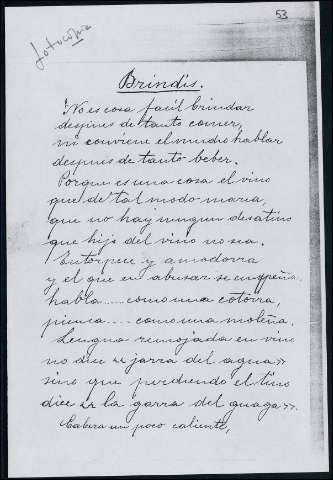 53
fotocopia
Brindis.
No es cosa facil brindar
despues de tanto comer,
ni conviene el mucho hablar
despues de tanto beber.
Porque es una cosa el vino
que de tal modo maréa,
que no hay ningun desatino
que hijo del vino no sea.
Entorpece y amodorra
y el que en abusar se empeña,
habla..... como una cotorra,
piensa.... como una
Lengua remojada en vino
no dice «jarra del agua»
sino que perdiendo el tino
dice «la garra del guaga».
Cabeza un poco caliente,